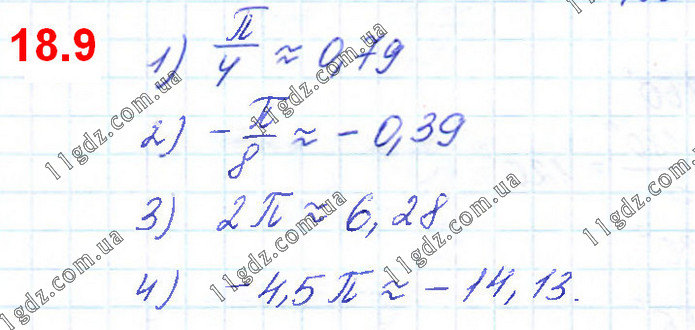 18.9
1) π/4 ≈ 0,79
2) -π/8 ≈ -0,39
3) 2π ≈ 6,28
4) -4,5π ≈ -14,13.
11gdz.com.ua
11gdz.com.ua
11gdz.com.ua
11gdz.com.ua
11gdz.com.ua
11gdz.com.ua
11gdz.com.ua
11gdz.com.ua